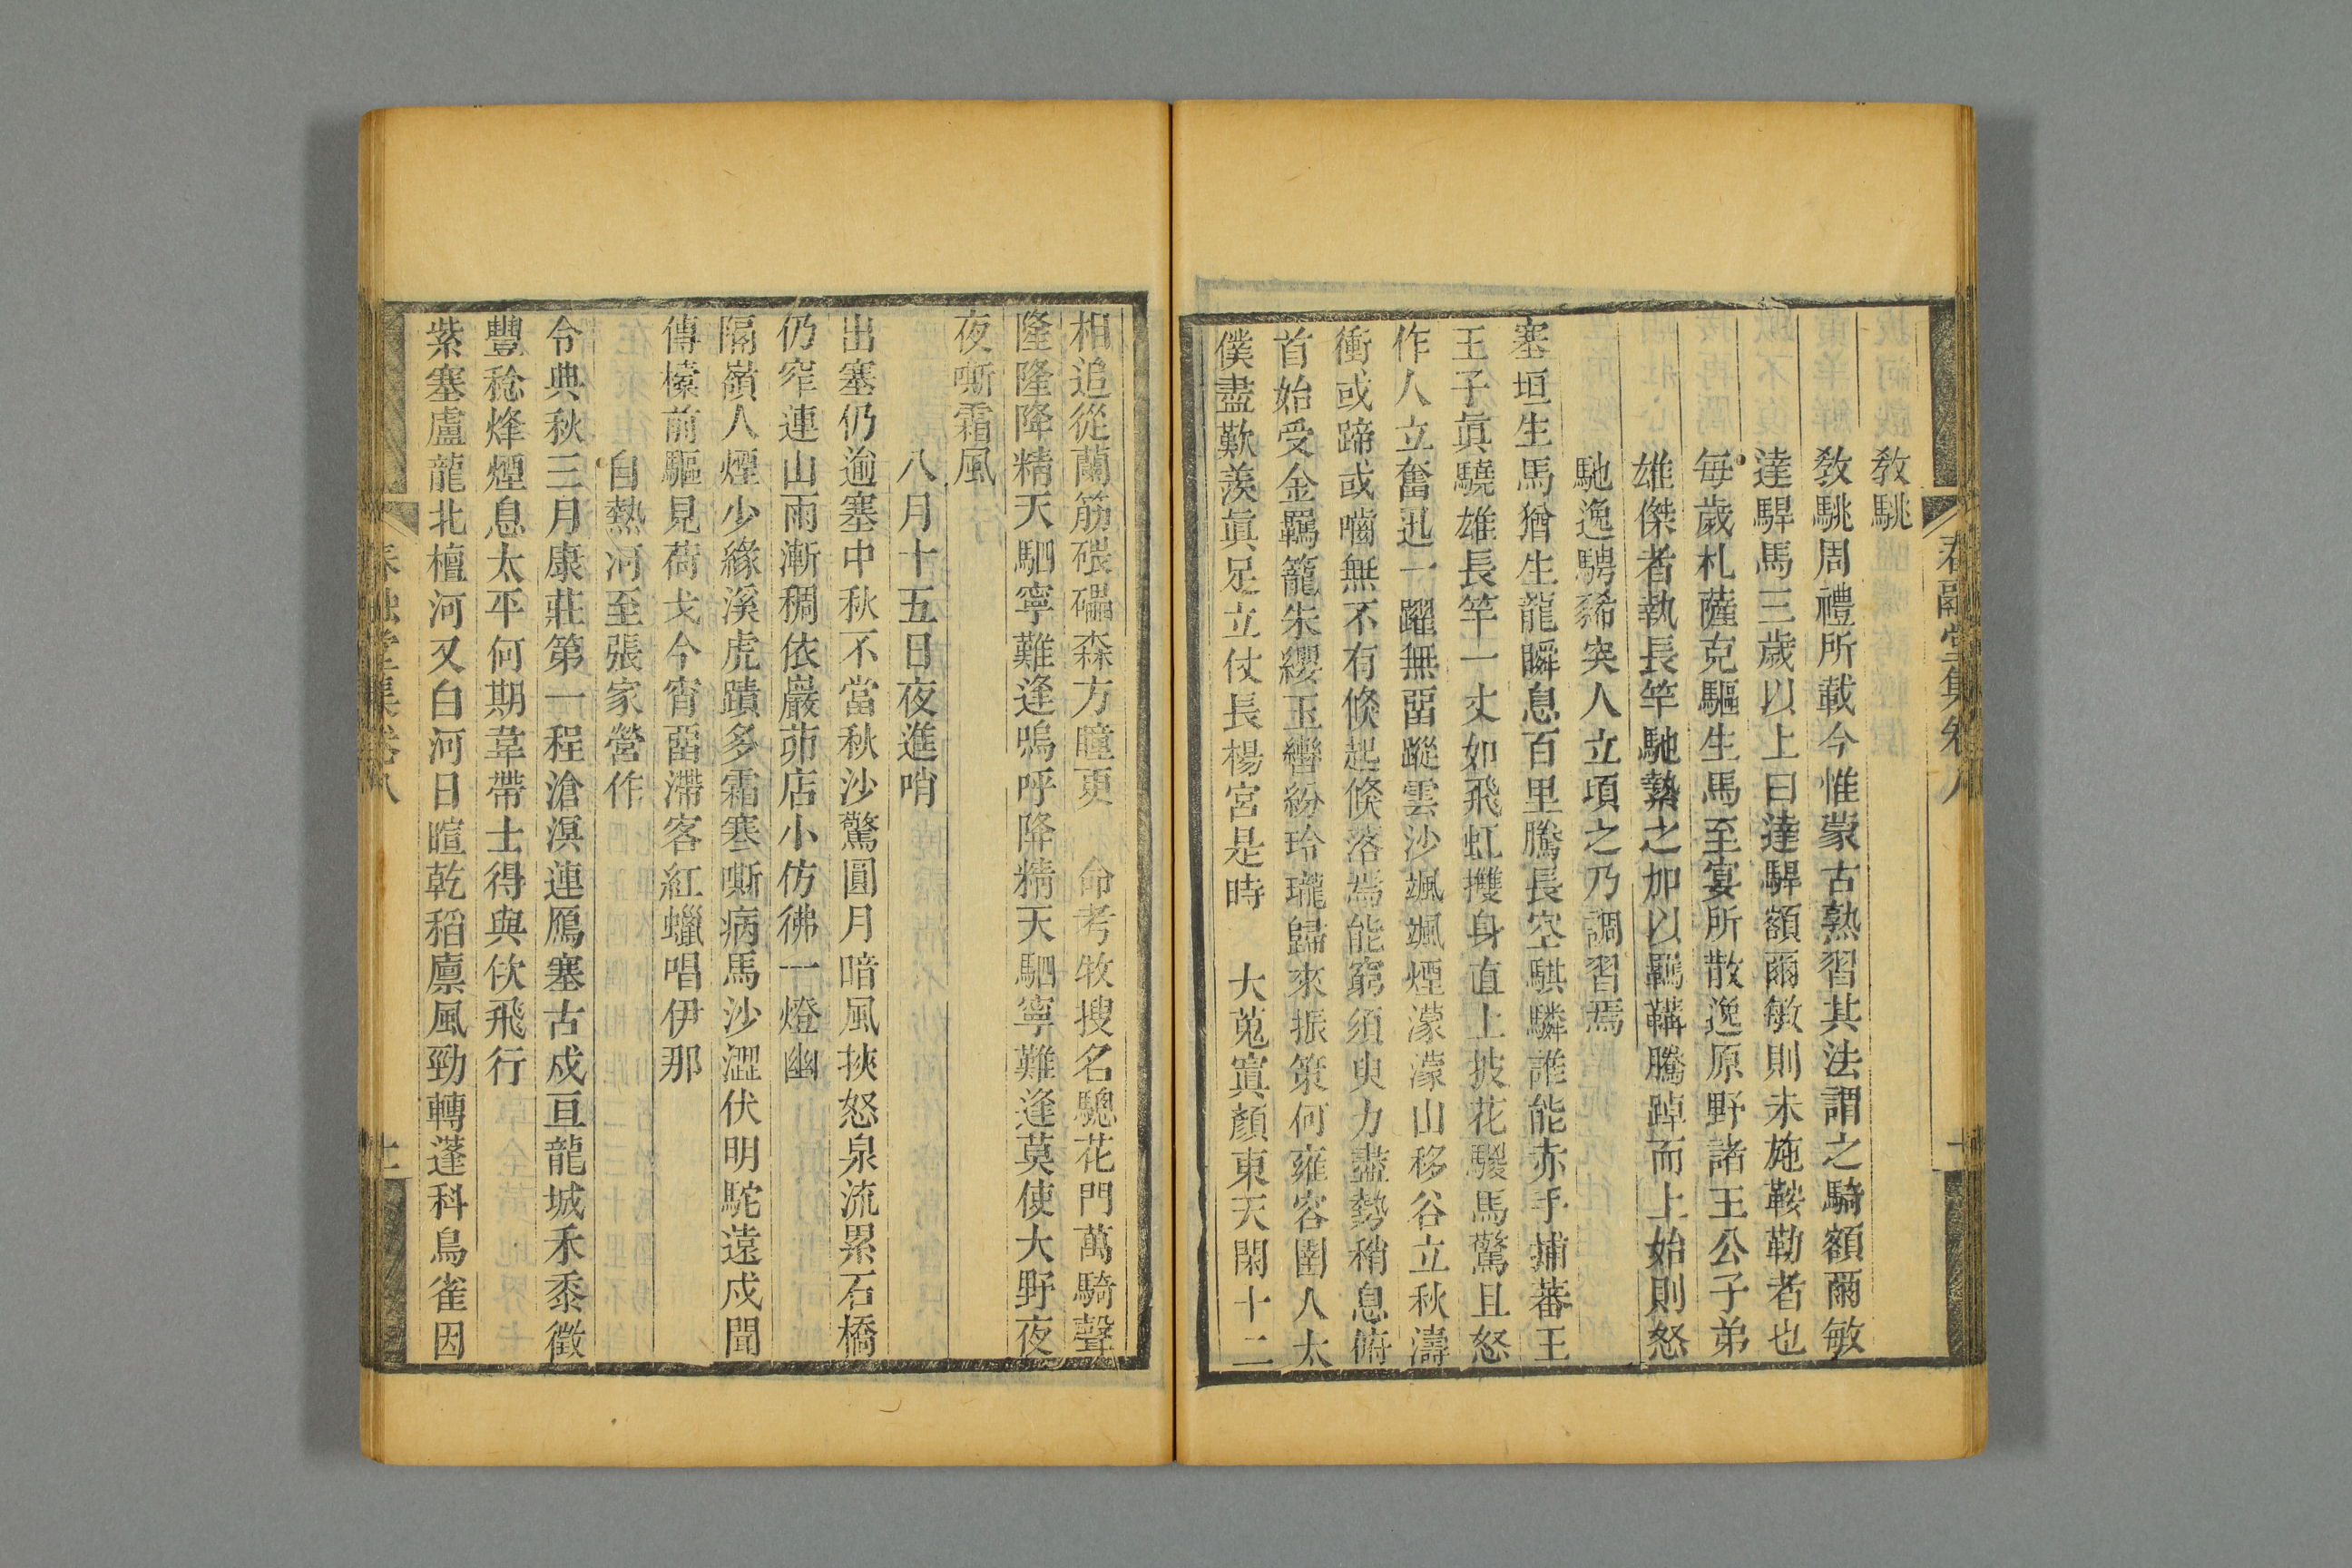 春融堂集卷八
敎駣
敎駣周禮所載今惟蒙古熟習其法謂之騎額爾敏
達驔馬三歲以上曰達驔額爾敏則未施鞍勒者也
每歲札薩克驅生馬至宴所散逸原野諸王公子弟
雄傑者執長竿馳縶之加以羈鞲騰踔而上始則怒
馳逸騁豨突人立頃之乃調習焉
塞垣生馬猶生龍瞬息百里騰長空騏驎誰能赤手捕蕃王
王子眞驍雄長竿一丈如飛虹攫身直上披花騣馬驚且怒
作人立奮迅一躍無畱蹤雲沙颯颯煙濛濛山移谷立秋濤
衝或蹄或嚙無不有倐起倐落焉能窮須臾力盡勢稍息俯
首始受金羈籠朱纓玉轡紛玲瓏歸來振策何雍容圉人太
僕盡歎羨眞足立仗長楊宮是時 大蒐寘顏東天閑十二
相追從蘭筋碨礧森方瞳更 命考牧搜名驄花門萬騎聲
隆隆降精天駟寧難逢嗚呼降精天駟寧難逢莫使大野夜
夜嘶霜風
八月十五日夜進哨
出塞仍逾塞中秋不當秋沙驚圓月暗風挾怒泉流累石橋
仍窄連山雨漸稠依巖茆店小仿彿一燈幽
隔嶺人煙少緣溪虎蹟多霜寒嘶病馬沙澀伏明駝遠戍聞
傳檬前驅見荷戈今宵畱滯客紅蠟唱伊那
自熱河至張家營作
令典秋三月康莊第一程滄溟連鴈塞古戍亘龍城禾黍徵
豐稔烽煙息太平何期韋帶士得與佽飛行
紫塞盧龍北檀河又白河日暄乾稻廪風勁轉蓬科鳥雀因
春融堂集卷八